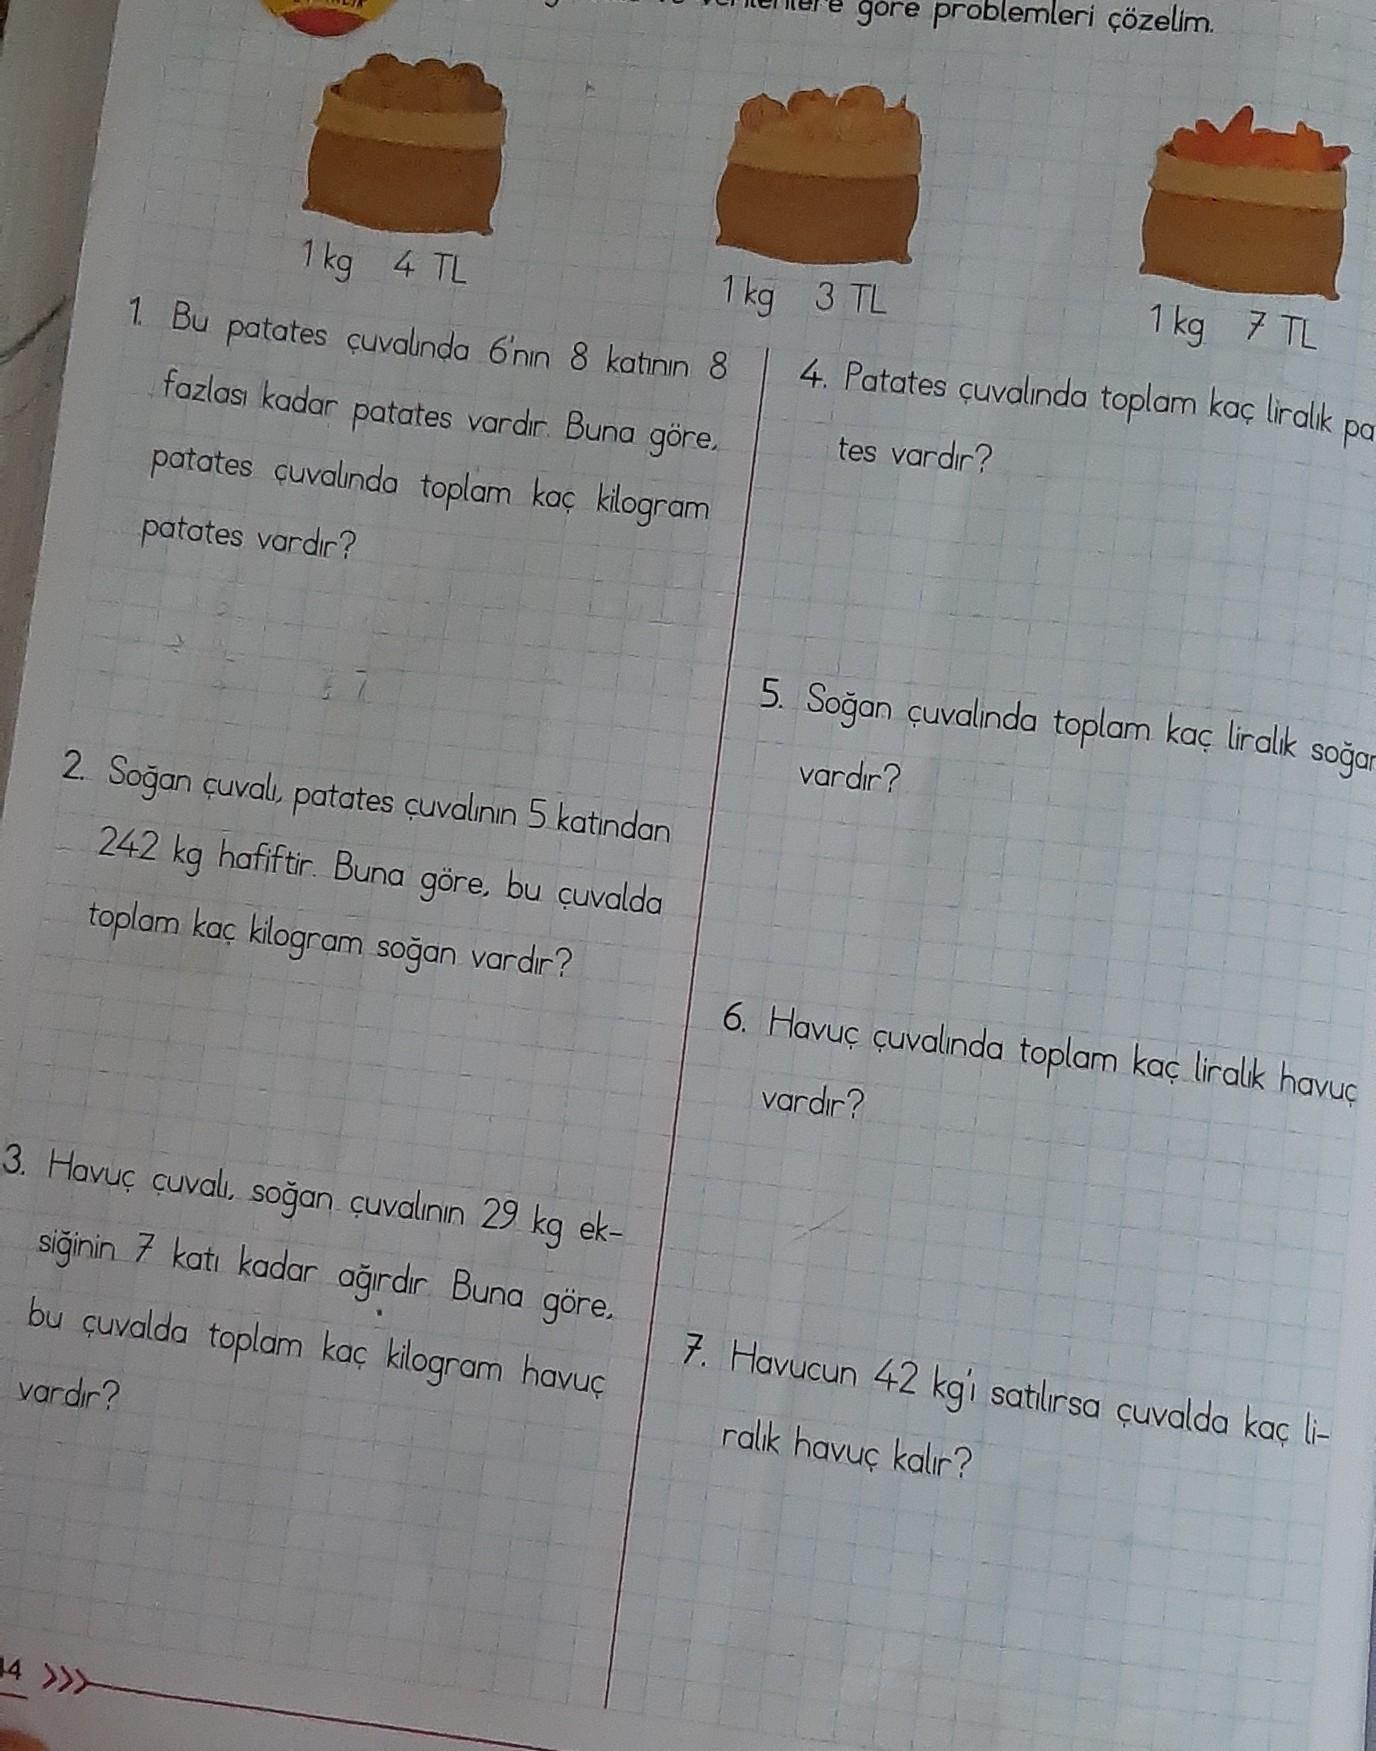 göre problemleri çözelim.
1 kg 4 TL
1 kg 3 TL
1 kg 7 TL
1. Bu patates çuvalında 6'nın 8 katının 8
fazlası kadar patates vardır. Buna göre,
patates çuvalında toplam kaç kilogram
patates vardır?
2. Soğan çuvalı, patates çuvalının 5 katından
242 kg hafiftir. Buna göre, bu çuvalda
toplam kaç kilogram soğan vardır?
3. Havuç çuvalı, soğan çuvalının 29 kg ek-
siğinin 7 katı kadar ağırdır. Buna göre,
bu çuvalda toplam kaç kilogram havuç
vardır?
4. Patates çuvalında toplam kaç liralık pa
tes vardır?
5. Soğan çuvalında toplam kaç liralık soğan
vardır?
6. Havuç çuvalında toplam kaç liralık havuç
vardır?
7. Havucun 42 kg'i satılırsa çuvalda kaç li-
ralık havuç kalır?